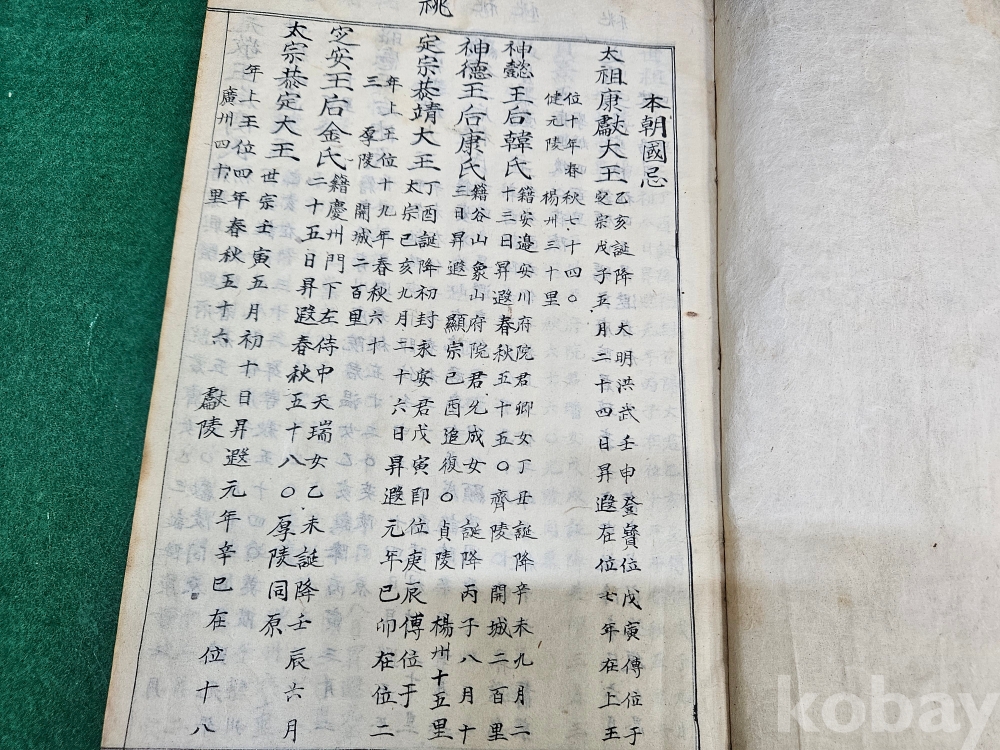 祧
本朝國忌
太祖康獻大王
乙亥誕降 大明洪武壬申登寶位戊寅傳位于
定宗戊子五月二十四日昇遐在位七年在上王
位十年春秋七十四〇
健元陵 楊州三十里
神懿王后韓氏
籍安邊安川府院君卿女丁丑誕降辛未九月二
十三日昇遐春秋五十五〇齊陵 開城二百里
神德王后康氏
籍谷山象山府院君允成女 誕降丙子八月十
三日昇遐 顯宗己酉追復〇貞陵 楊州十五里
定宗恭靖大王
丁酉誕降初封永安君戊寅即位庚辰傳位于
太宗己亥九月二十六日昇遐元年己卯在位二
年上王位十九年春秋六十
三 厚陵 開城二百里
定安王后金氏
籍慶州門下左侍中天瑞女乙未誕降壬辰六月
二十五日昇遐春秋五十八〇厚陵同原
太宗恭定大王
世宗壬寅五月初十日昇遐元年辛巳在位十八
年上王位四年春秋五十六 獻陵
廣州四十里
kobay